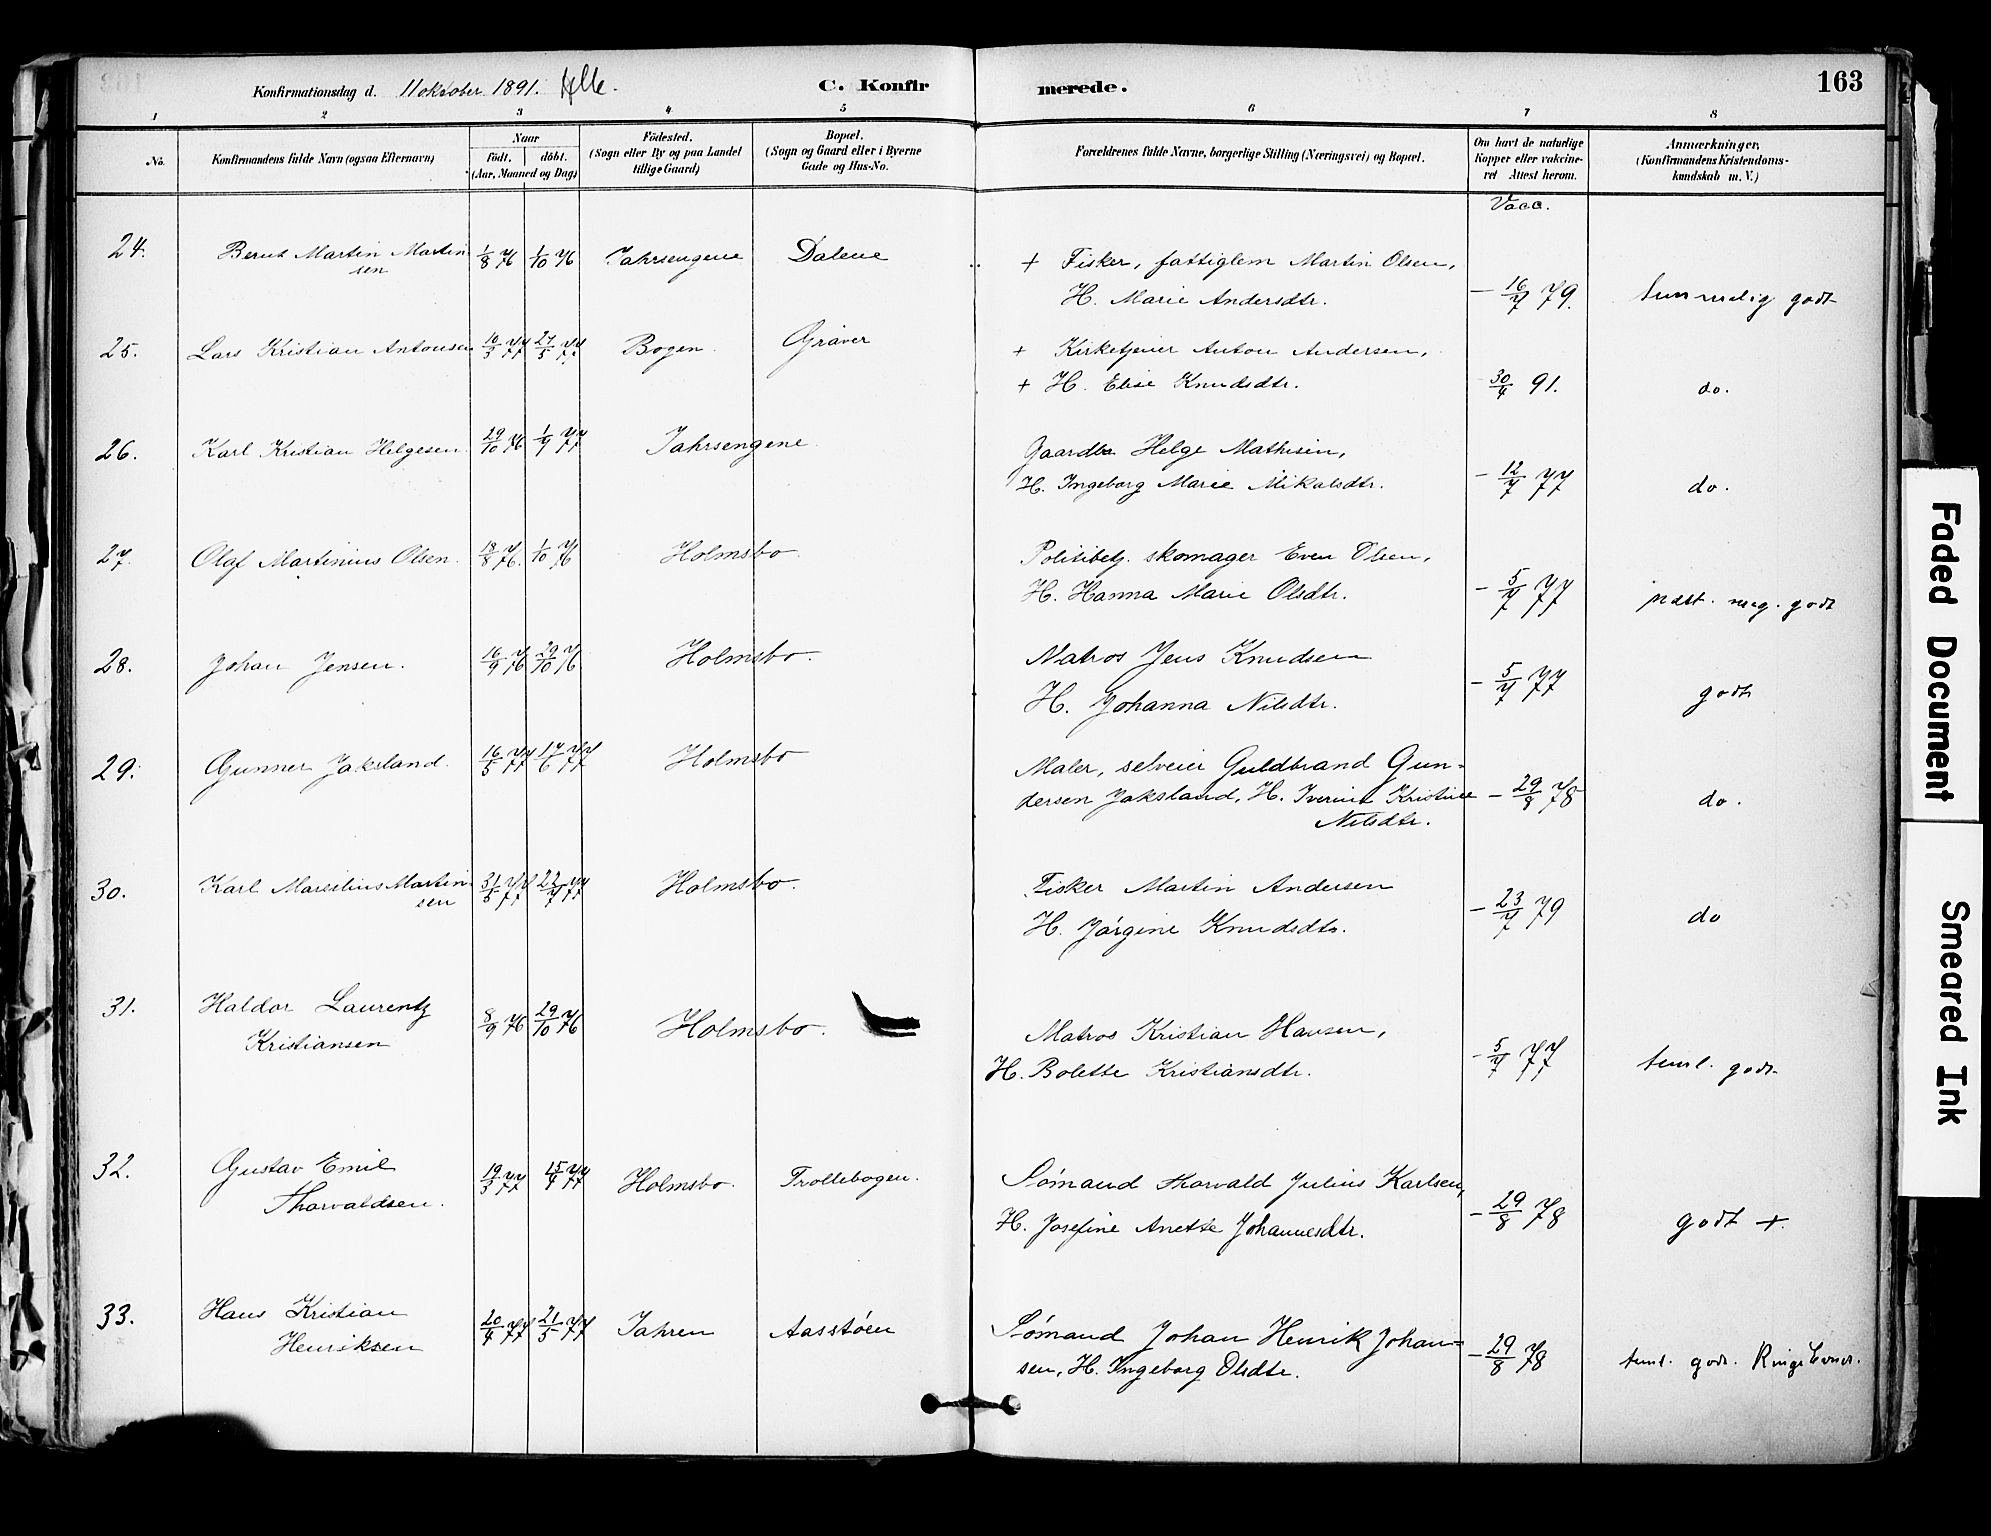 Konfirmationsdag d. 11 oktober 1891. C. Konfirmerede. 163
1 2 3 4 5 6 7 8
No. Konfirmandens fulde Navn (ogsaa Efternavn) Naar født. døbt. (Aar, Maaned og Dag) Fødested. (Sogn eller By og paa Landet tillige Gaard) Bopæl. (Sogn og Gaard eller i Byerne Gade og Hus-No. Forældrenes fulde Navne, borgerlige Stilling (Næringsvei) og Bopæl. Om havt de naturlige Kopper eller vakcineret Attest herom. Anmærkninger, (Konfirmandens Kristendomskundskab m. V.)
Vacc.
24. Bernt Martin Martin- 1/8 76 1/10 76 Jahrsengene Dalene + Fisker, fattiglem Martin Olsen,
sen H. Marie Andersdtr. - 16/7 79. temmelig godt
25. Lars Kristian Antonsen 10/3 77 27/5 77 Bogen Graver + Kirketjener Anton Andersen,
+ H. Elise Knudsdtr. 30/4 91. do.
26. Karl Kristian Helgesen 29/10 76 1/9 77 Jahrsengene Gaardbr Helge Mathisen,
H. Ingeborg Marie Mikalsdtr. - 12/7 77 do.
27. Olaf Martinius Olsen. 18/8 76. 1/10 76 Holmsbo. Politibetj. skomager Even Olsen,
H. Hanna Marie Olsdtr. - 5/7 77 næst. meg. godt
28. Johan Jensen. 16/9 76 29/10 76 Holmsbo. Matros Jens Knudsen
H. Johanna Nilsdtr. - 5/7 77 godt
29. Gunner Jaksland. 16/5 77 17/6 77 Holmsbo Maler, selveier Guldbrand Gun-
dersen Jaksland, H. Iverine Kristine - 29/8 78 do.
Nilsdtr.
30. Karl Marselius Martin- 31/5 77 22/7 77 Holmsbo. Fisker Martin Andersen
sen H. Jørgine Knudsdtr. - 23/7 79 do
31. Haldor Laurentz 8/9 76 29/10 76 Holmsbo. Matros Kristian Hansen,
Kristiansen H. Bolette Kristiansdtr. - 5/7 77 teml. godt
32. Gustav Emil 19/3 77 15/4 77 Holmsbo. Trollebogen. Sømand Thorvald Julius Karlsen,
Thorvaldsen. H. Josefine Anette Johannesdtr. - 29/8 78 godt +.
33. Hans Kristian 20/4 77 21/5 77 Jahren Aasstøen Sømand Johan Henrik Johan-
Henriksen sen, H. Ingeborg Olsdtr. - 29/8 78 teml. godt. Ringe Evner.
Faded Document
Smeared Ink